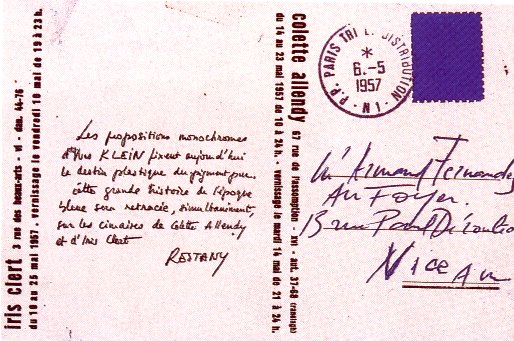 iris clert 3 rue des beaux-arts - vi - dan. 44-76
du 10 au 25 mai 1957 - vernissage le vendredi 10 mai de 19 à 23 h.
Les propositions monochromes
d'Yves KLEIN fixent aujourd'hui
le destin plastique du pigment pur.
cette grande histoire de l'époque
bleue sera retracée, simultanément,
sur les cimaises de Colette Allendy
et d'Iris Clert
RESTANY
colette allendy 67 rue de l'assomption - xvi - aut. 37-68
du 14 au 23 mai 1957 de 10 à 24 h. - vernissage le mardi 14 mai de 21 à 24 h.
P.P. PARIS TRI ET DISTRIBUTION - N 1 -
*
6.-5
1957
Mr Armand Fernandez
Au Foyer.
15 rue Paul Déroulède
Nice